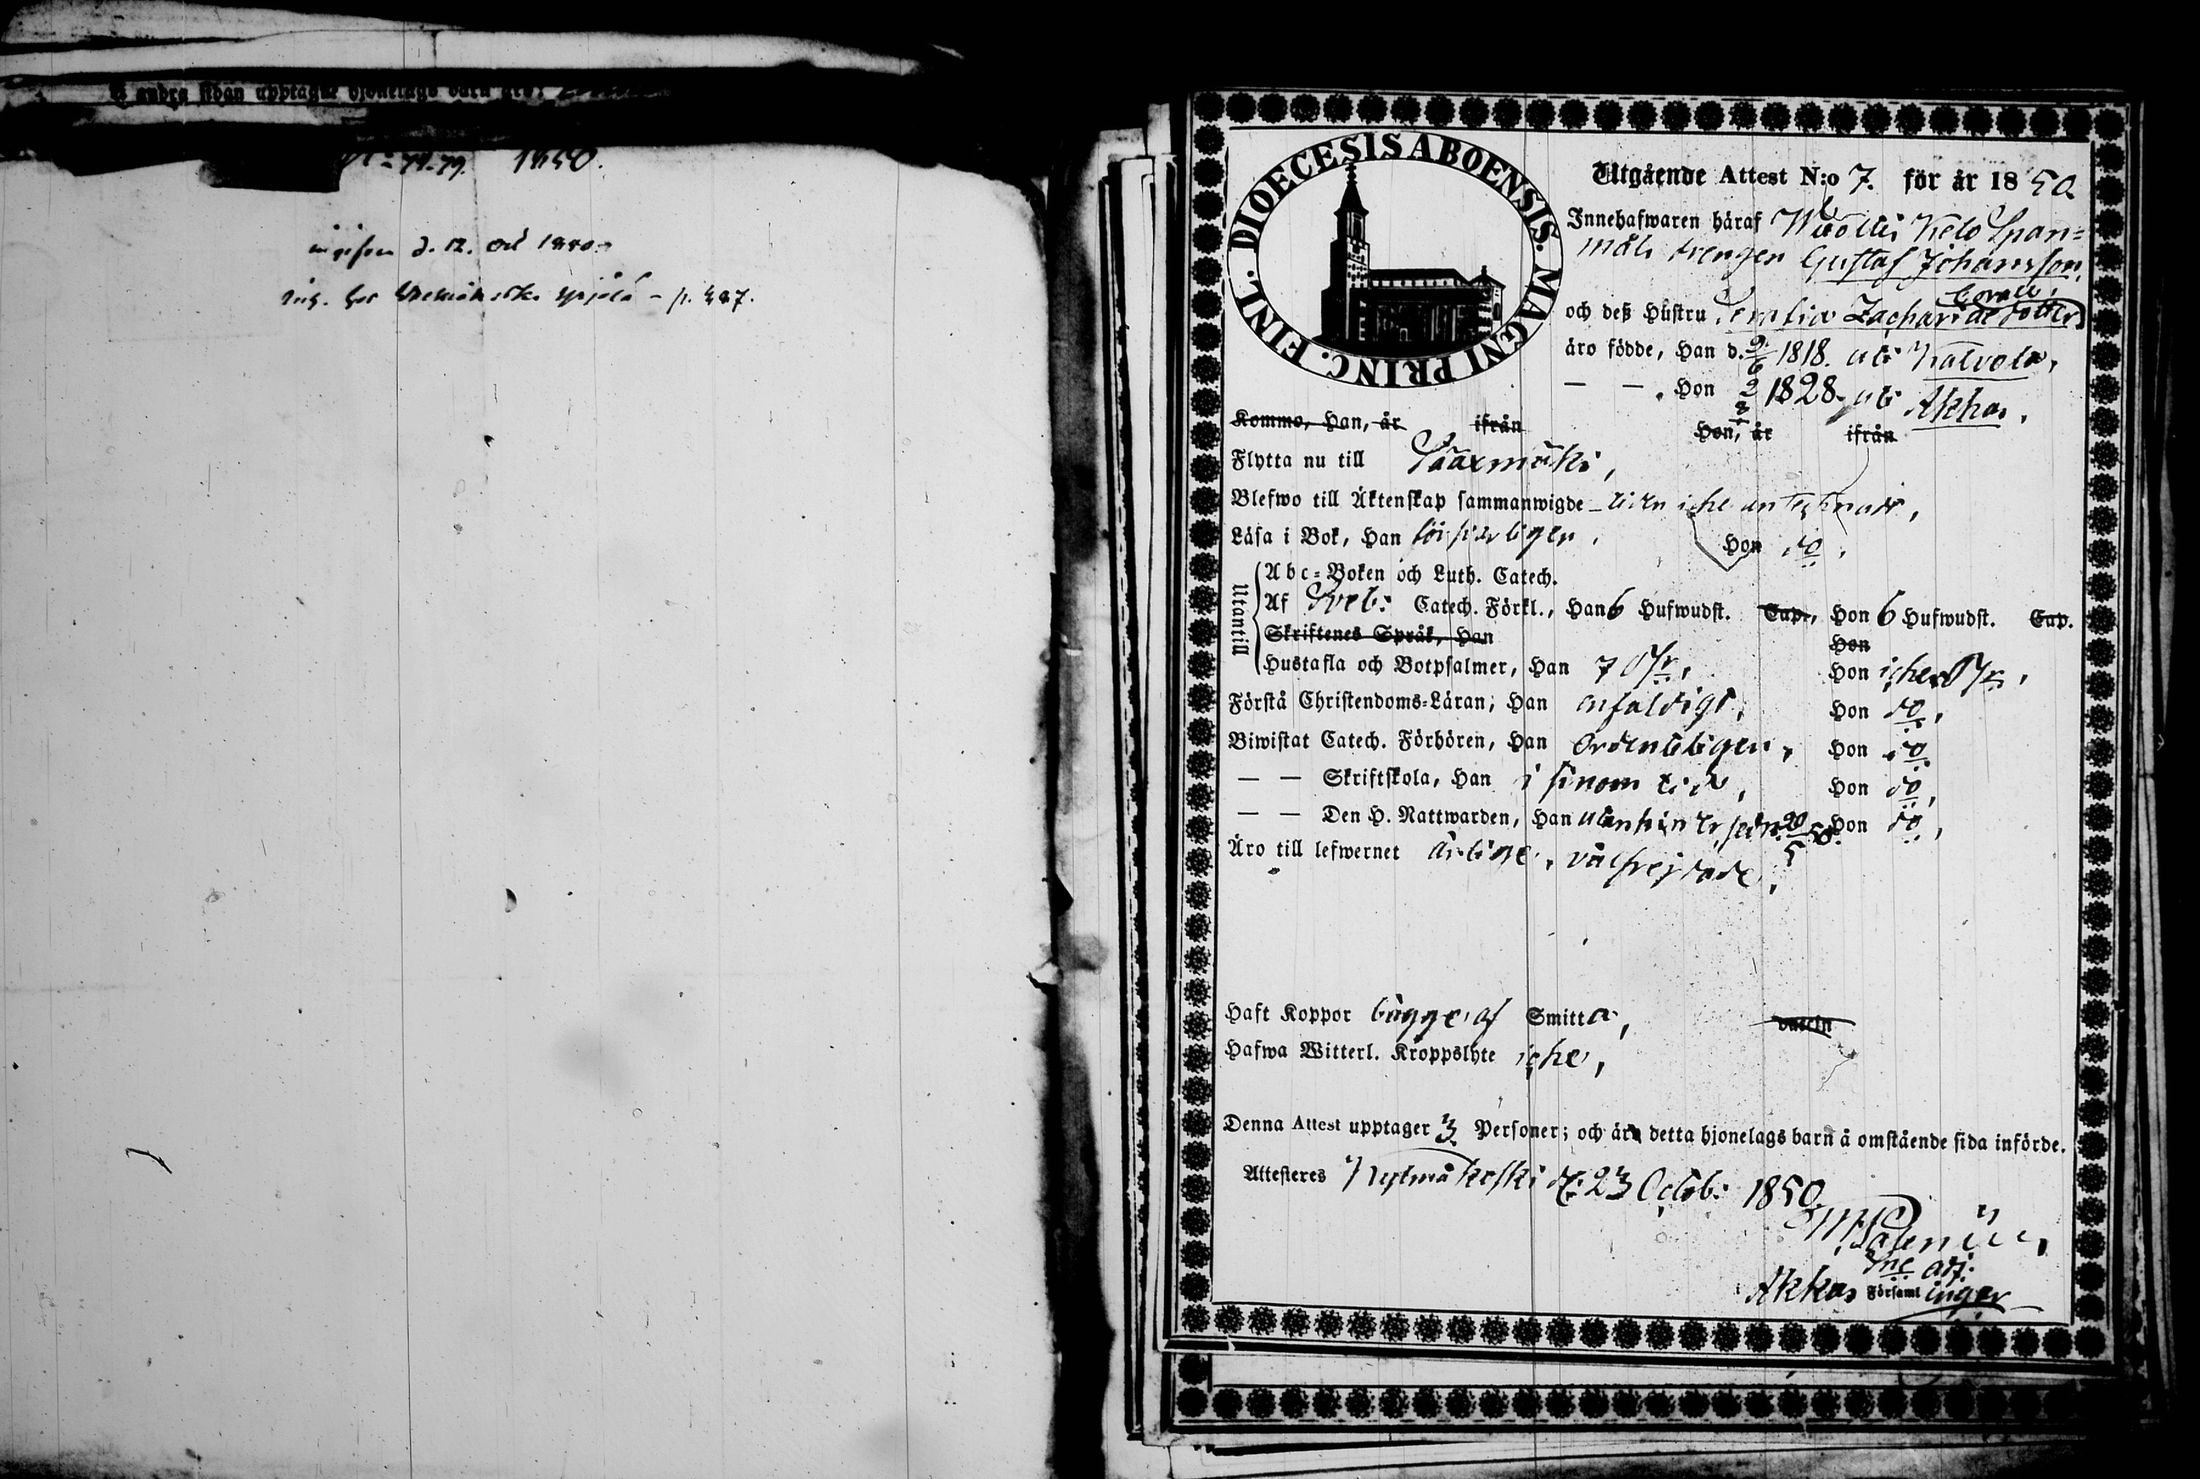 andra sidan upptagne hjonelags barn äro:
74-79. 1850.
d. 12. Oct 1850
p. 487.
DIOECESIS ABOENSIS. MAGNI PRINC. FINL.
Utgående Attest N:o 7. för år 1850
Innehafwaren häraf Span=
måls drengen Gustaf Johansson,
och deß Hustru Zachariae dotter
äro födde, Han d. 9/6 1818. uti Kalvola,
— — Hon 2/3 1828. uti Akkas.
Komma, Han, år ifrån Hon, år ifrån
Flytta nu till Sääxmäki,
Blefwo till Äktenskap sammanwigde – tiden icke antecknadt,
Läsa i Bok, Han förswarligen. Hon do.
Utantill
Abc=Boken och Luth. Catech.
Af Sveb: Catech. Förkl., Han 6 Hufwudst. Cap., Hon 6 Hufwudst. Cap.
Skriftenes Språk, Han Hon
Hustafla och Botpsalmer, Han 7 Ps, Hon icke Ps,
Förstå Christendoms=Läran, Han enfaldigt, Hon do,
Biwistat Catech. Förhören, Han Ordenteligen, Hon do
— — Skriftskola, Han i sinom tid, Hon do,
— — Den H. Nattwarden, Han utan hinder sedn. 20/5 50. Hon do,
Äro till lefwernet ärlige, välfrejdade,
Haft Koppor bägge af Smitta, vaccin
Hafwa Witterl. Kroppslyte icke,
Denna Attest upptager 3 Personer; och äro detta hjonelags barn å omstående sida införde.
Attesteres Kylmäkoski d. 23 Octob: 1850
adj:
i Akkas Församlingar